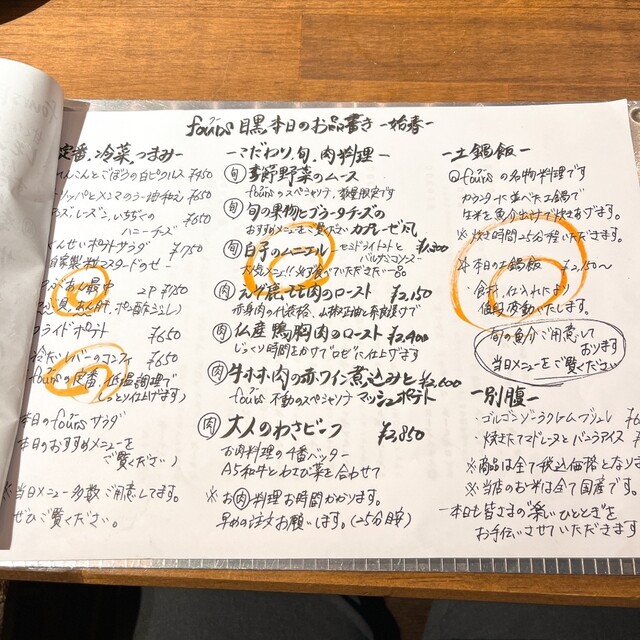 fours 目黒 本日のお品書き -始春-
定番、冷菜、つまみ-
れんこんとごぼうの白ピクルス ¥450
メンマのラー油和え ¥650
レーズン、いちじくの
ハニーチーズ ¥650
くんせいポテトサラダ ¥750
自家製 マスタードのせ-
最中 2P ¥750
フライドポテト ¥650
冷たいレバーのコンフィ ¥650
foursの定番、低温調理で
仕上げます)
本日のfoursサラダ
本日のおすすめメニューを
ご覧ください)
※当日メニュー多数ご用意してます。
ぜひご覧ください。
-こだわり、旬、肉料理-
旬 季節野菜のムース
foursのスペシャリテ、数量限定です
旬 旬の果物とブラータチーズの
おすすめメニューをご覧ください カプレーゼ風
旬 白子のムニエル セミドライトマトと ¥1,800
バルサミコソース
大人気メニュー!! 必ず食べていただきたい一品
肉 えぞ鹿もも肉のロースト ¥2,150
赤身肉の代表格、山椒
肉 仏産 鴨胸肉のロースト ¥2,400
じっくり時間をかけてロゼに仕上げます
肉 牛ホホ肉の赤ワイン煮込みと ¥2,600
fours 不動のスペシャリテ マッシュポテト
肉 大人のわさビーフ ¥2,850
お肉料理の4番バッター
A5和牛とわさび菜を合わせて
※お肉料理お時間かかります。
早めの注文お願いします。(25分目安)
-土鍋飯-
◎foursの名物料理です
カウンターに並べた土鍋で
生米を魚介出汁で炊きあげます。
※炊き時間25分程いただきます。
☆本日の土鍋飯 ¥2,150~
・食材、仕入れにより
値段変動いたします。
旬の魚介ご用意して
おります
当日メニューをご覧ください
-別腹-
・ゴルゴンゾーラクレームブリュレ
・焼きたてマドレーヌとバニラアイス
※商品は全て税込価格となります
※当店のお米は全て国産です。
-本日も皆さまの楽しいひとときを
お手伝いさせていただきます